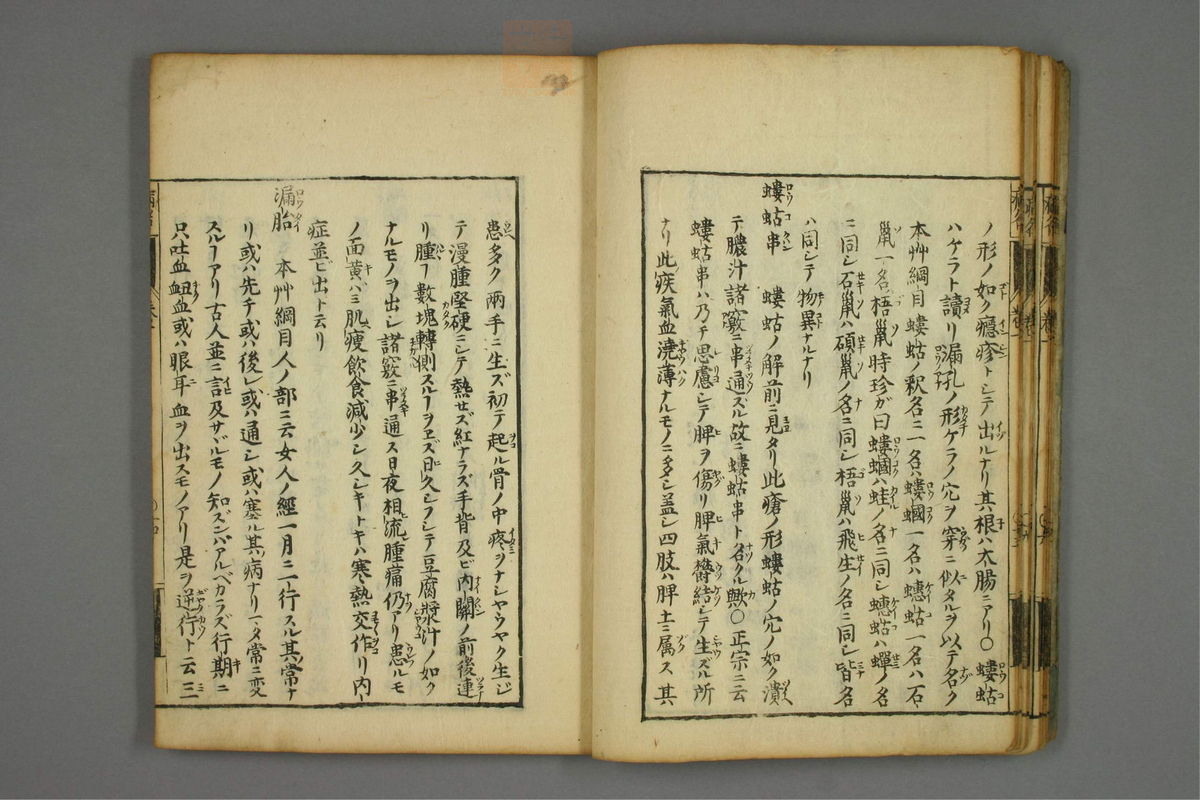 ノ形ノ如ク癮疹トシテ出ルナリ其根ハ大腸ニアリ〇螻蛄
ハケラト讀リ漏孔ノ形ケラノ穴ヲ穿ニ似タルヲ以テ名ク
本艸綱目螻蛄ノ釈名ニ一名ハ螻蟈一名ハ蟪蛄一名ハ石
鼠一名梧鼠時珍ガ曰螻蟈ハ蛙ノ名ニ同シ蟪蛄ハ蟬ノ名
ニ同シ石鼠ハ碩鼠ノ名ニ同シ梧鼠ハ飛生ノ名ニ同シ皆名
ハ同シテ物異ナルナリ
螻蛄串 螻蛄ノ解前ニ見タリ此瘡ノ形螻蛄ノ穴ノ如ク潰
テ膿汁諸竅ニ串通ズル故ニ螻蛄串ト名クル歟〇正宗ニ云
螻蛄串ハ乃チ思慮シテ脾ヲ傷リ脾氣欝結シテ生ズル所
ナリ此疾氣血澆薄ナルモノニ多シ蓋シ四肢ハ脾土ニ属ス其
患多ク兩手ニ生ズ初テ起ル骨ノ中疼ヲナシヤウヤク生ジ
テ漫腫堅硬ニシテ熱セズ紅ナラズ手背及ビ内關ノ前後連
リ腫ヿ數塊轉側スルヿヲヱズ日久シフシテ豆腐漿汁ノ如ク
ナルモノヲ出シ諸竅ニ串通ス日夜相流腫痛仍アリ患ルモ
ノ面黄バミ肌瘦飲食減少シ久シキトキハ寒熱交作リ内
症並ビ出ト云リ
漏胎 本艸綱目人ノ部ニ云女人ノ經一月ニ一行スル其常ナ
リ或ハ先チ或ハ後レ或ハ通シ或ハ塞ル其病ナリ一タ常ニ変
スルヿアリ古人並ニ言及サヾルモノ知ズンバアルベカラズ行期ニ
只吐血衄血或ハ眼耳血ヲ出スモノアリ是ヲ逆行ト云三